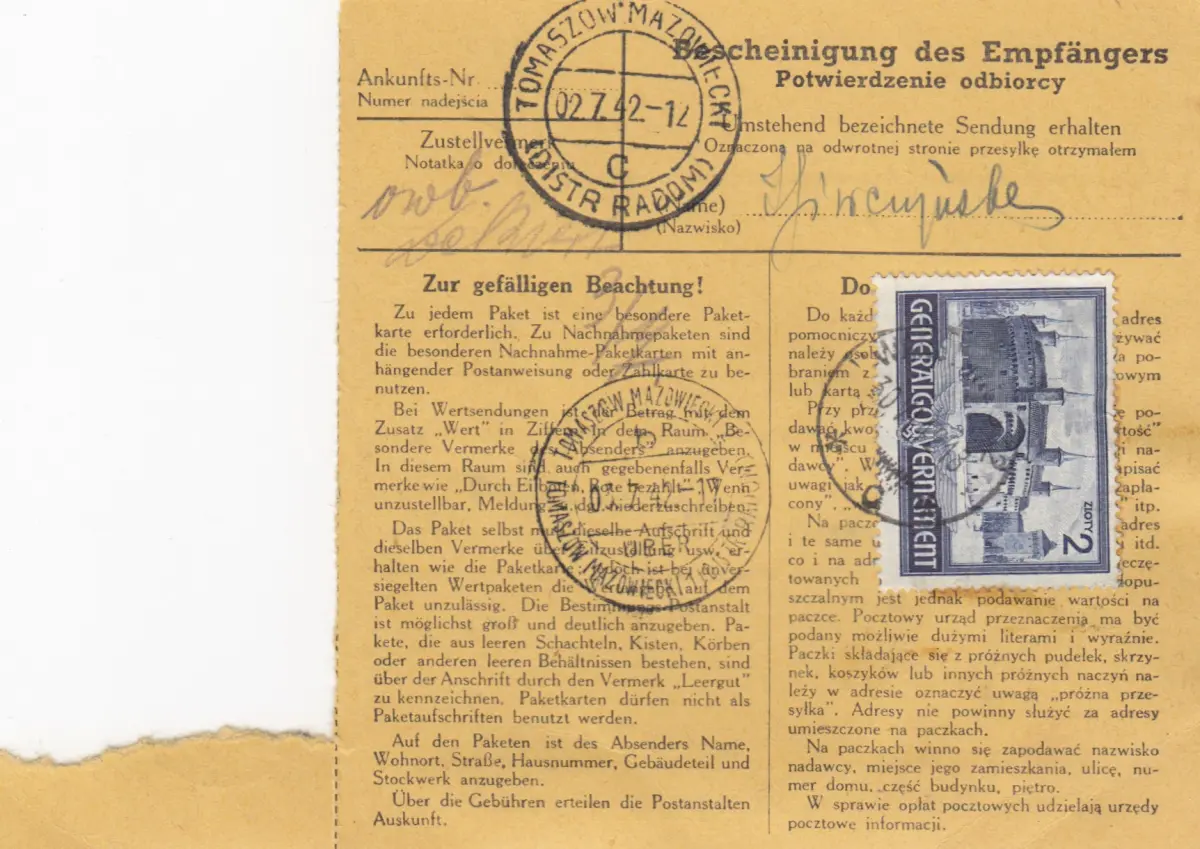 TOMASZÓW MAZOWIECKI
02.7.42-12
C
(DISTR RADOM)
Bescheinigung des Empfängers
Potwierdzenie odbiorcy
Ankunfts-Nr.
Numer nadejścia
Umstehend bezeichnete Sendung erhalten
Oznaczoną na odwrotnej stronie przesyłkę otrzymałem
Zustellvermerk
Notatka o
(Name)
(Nazwisko)
Zur gefälligen Beachtung!
Zu jedem Paket ist eine besondere Paket-
karte erforderlich. Zu Nachnahmepaketen sind
die besonderen Nachnahme-Paketkarten mit an-
hängender Postanweisung oder Zahlkarte zu be-
nutzen.
Bei Wertsendungen ist der Betrag mit dem
Zusatz „Wert" in Ziffern in dem Raum „Be-
sondere Vermerke des Absenders" anzugeben.
In diesem Raum sind auch gegebenenfalls Ver-
merke wie „Durch Eilboten, Bote bezahlt", „Wenn
unzustellbar, Meldung" u. dgl. niederzuschreiben.
Das Paket selbst muß dieselbe Aufschrift und
dieselben Vermerke über Eilzustellung usw. er-
halten wie die Paketkarte; jedoch ist bei unver-
siegelten Wertpaketen die Wertangabe auf dem
Paket unzulässig. Die Bestimmungs-Postanstalt
ist möglichst groß und deutlich anzugeben. Pa-
kete, die aus leeren Schachteln, Kisten, Körben
oder anderen leeren Behältnissen bestehen, sind
über der Anschrift durch den Vermerk „Leergut"
zu kennzeichnen. Paketkarten dürfen nicht als
Paketaufschriften benutzt werden.
Auf den Paketen ist des Absenders Name,
Wohnort, Straße, Hausnummer, Gebäudeteil und
Stockwerk anzugeben.
Über die Gebühren erteilen die Postanstalten
Auskunft.
TOMASZÓW MAZOWIECKI
7.42-1
ÜBER
TOMASZÓW MAZOWIECKI 1
Do
Do każd adres
pomocniczy żywać
należy osob a po-
braniem z owym
lub kartą
Przy prz ę po-
dawać kwo rtość"
w miejscu i na-
dawcy". W pisać
uwagi jak zapła-
cony". itp.
Na pacz adres
i te same i itd.
co i na adr eczę-
towanych dopu-
szczalnym jest jednak podawanie wartości na
paczce. Pocztowy urząd przeznaczenia ma być
podany możliwie dużymi literami i wyraźnie.
Paczki składające się z próżnych pudełek, skrzy-
nek, koszyków lub innych próżnych naczyń na-
leży w adresie oznaczyć uwagą „próżna prze-
syłka". Adresy nie powinny służyć za adresy
umieszczone na paczkach.
Na paczkach winno się zapodawać nazwisko
nadawcy, miejsce jego zamieszkania, ulicę, nu-
mer domu, część budynku, piętro.
W sprawie opłat pocztowych udzielają urzędy
pocztowe informacji.
GENERALGOUVERNEMENT
2
ZŁOTY